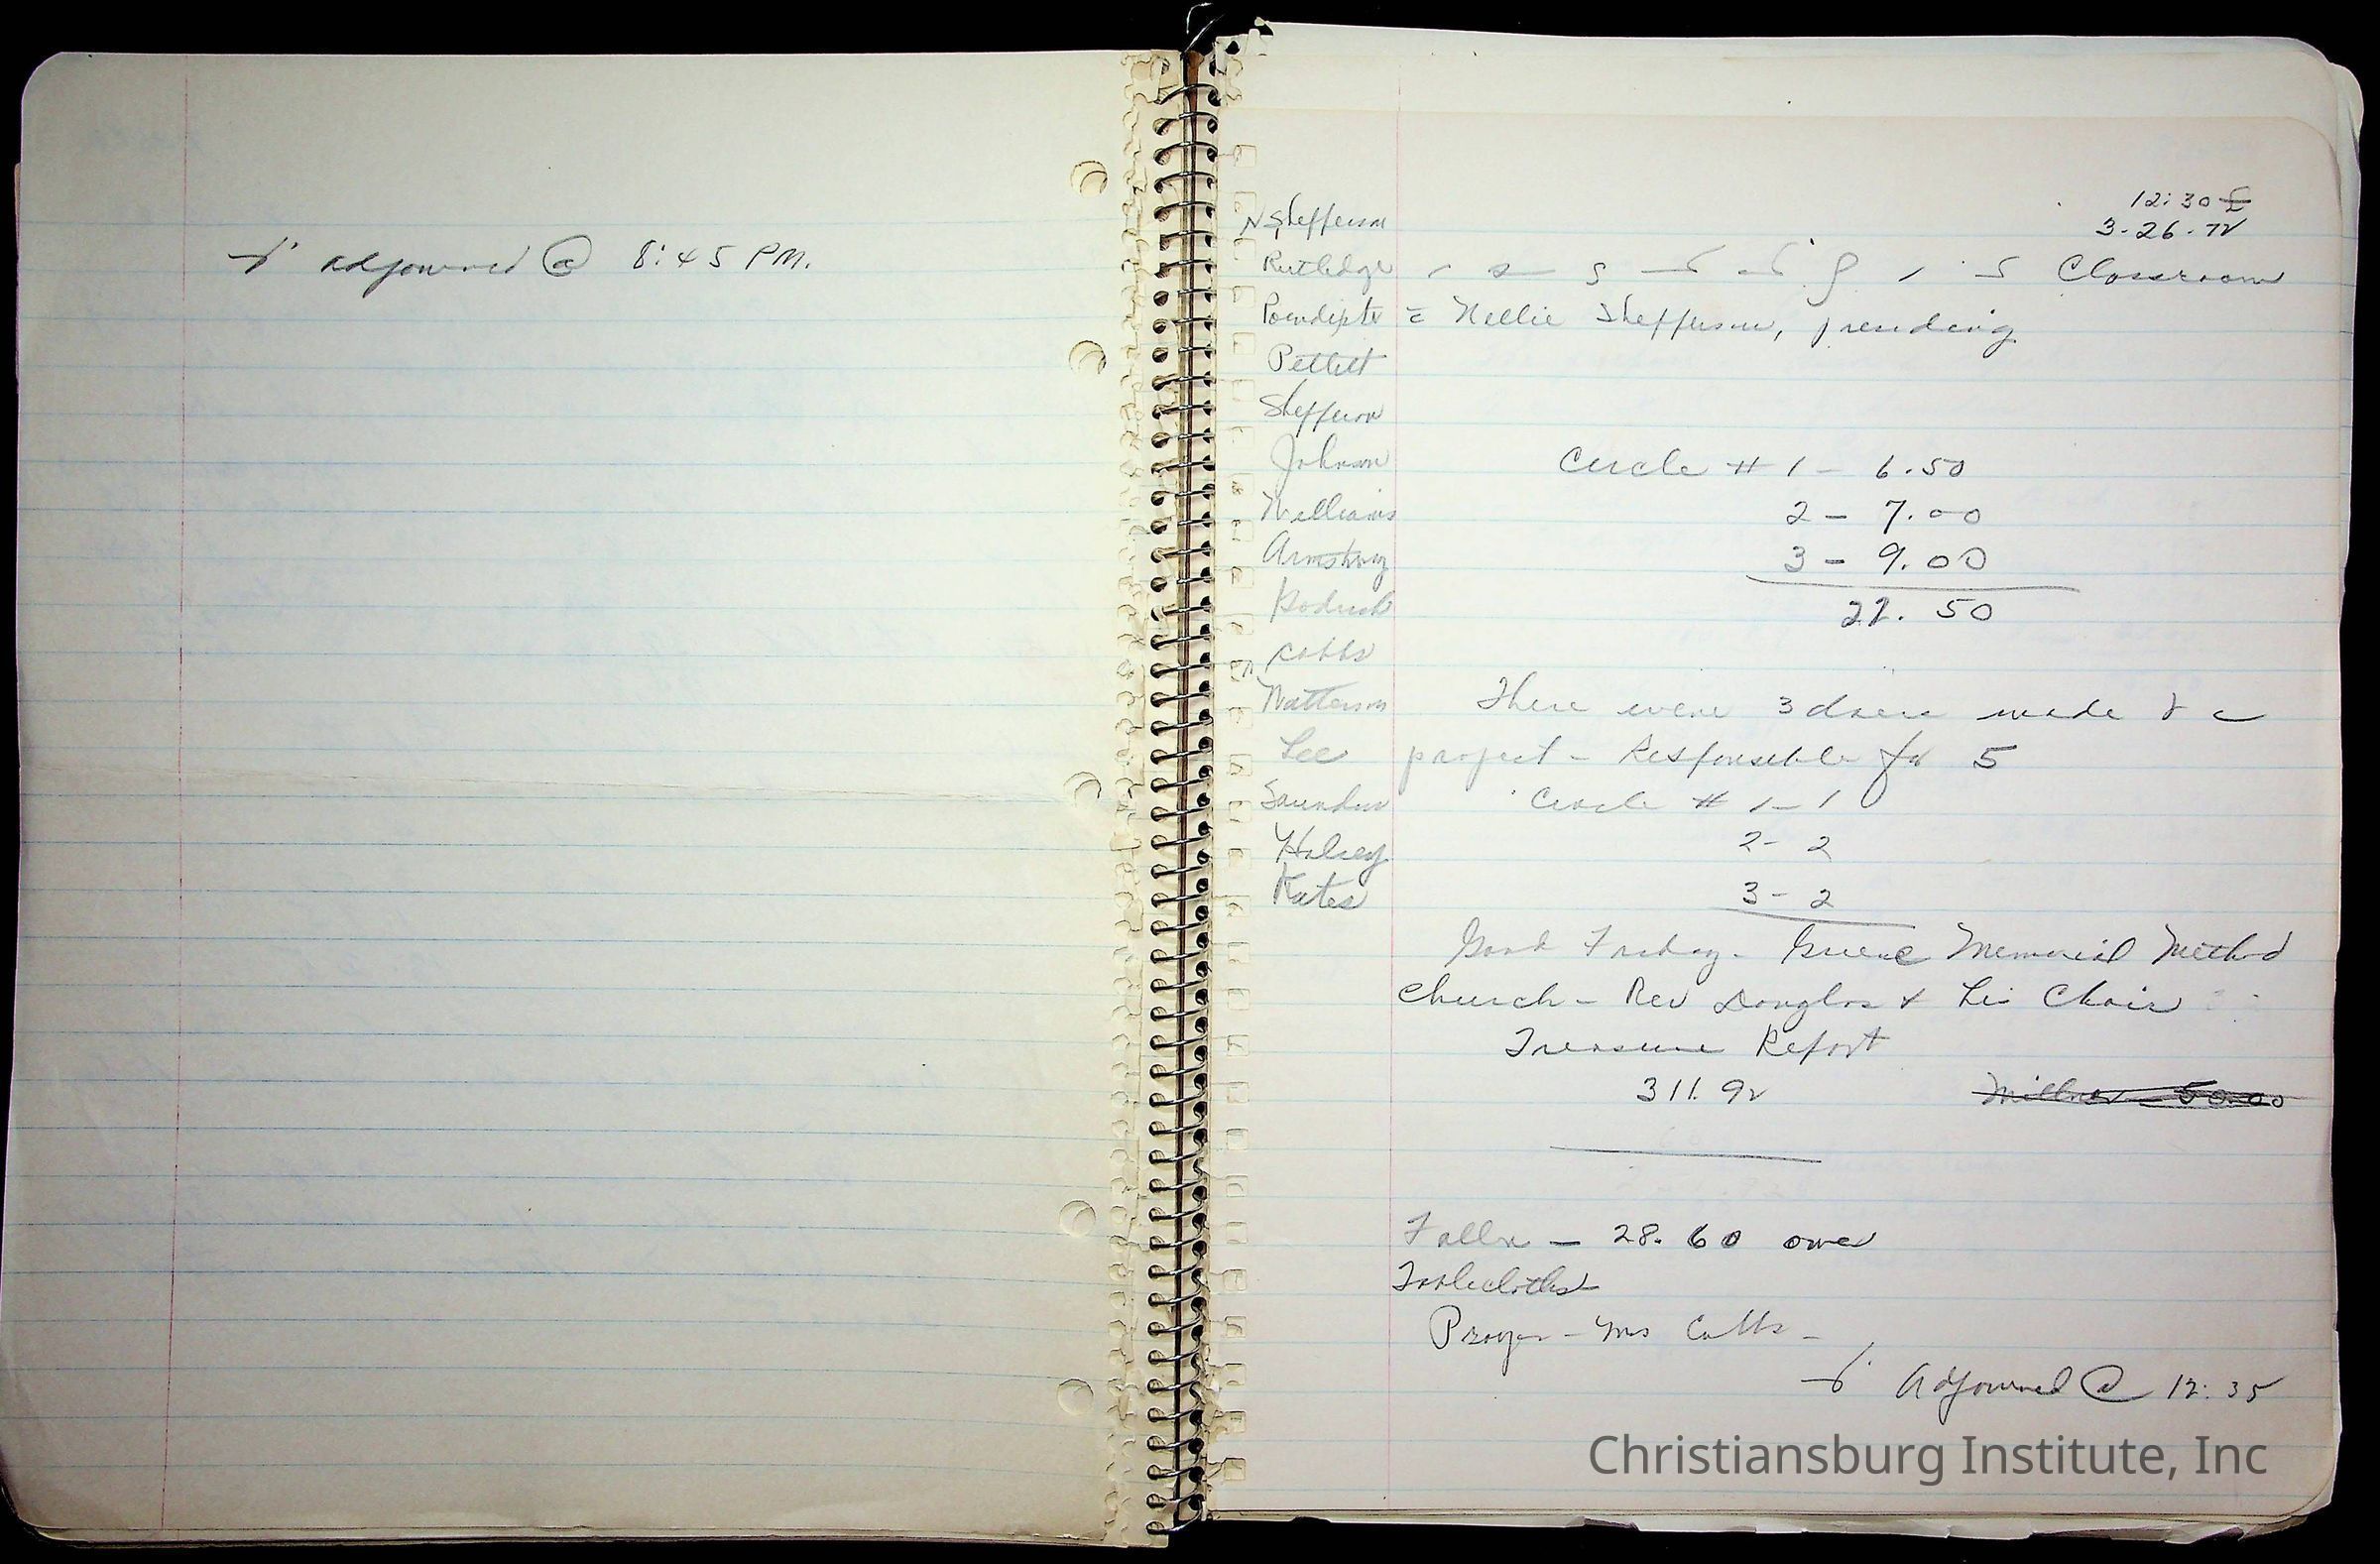 adjourned @ 8:45 PM.
12:30
3-26-72
N Shefferson
Rutledge Classroom
Poindexter = Nellie Shefferson, presiding
Pettitt
Shefferson
Johnson Circle # 1 - 6.50
Williams 2 - 7.00
Armstrong 3 - 9.00
22.50
Cobbs
Patterson There were 3 made
Lee project - Responsible for 5
Saunders Circle # 1 - 1
Halsey 2 - 2
Kates 3 - 2
Good Friday - Greene Memorial Method
Church - Rev Douglas & his Choir
Treasure Report
311.92 Millner - 50.00
28.60 owed
Tablecloths
Prayer - Mrs Cobbs -
Adjourned @ 12:35
Christiansburg Institute, Inc